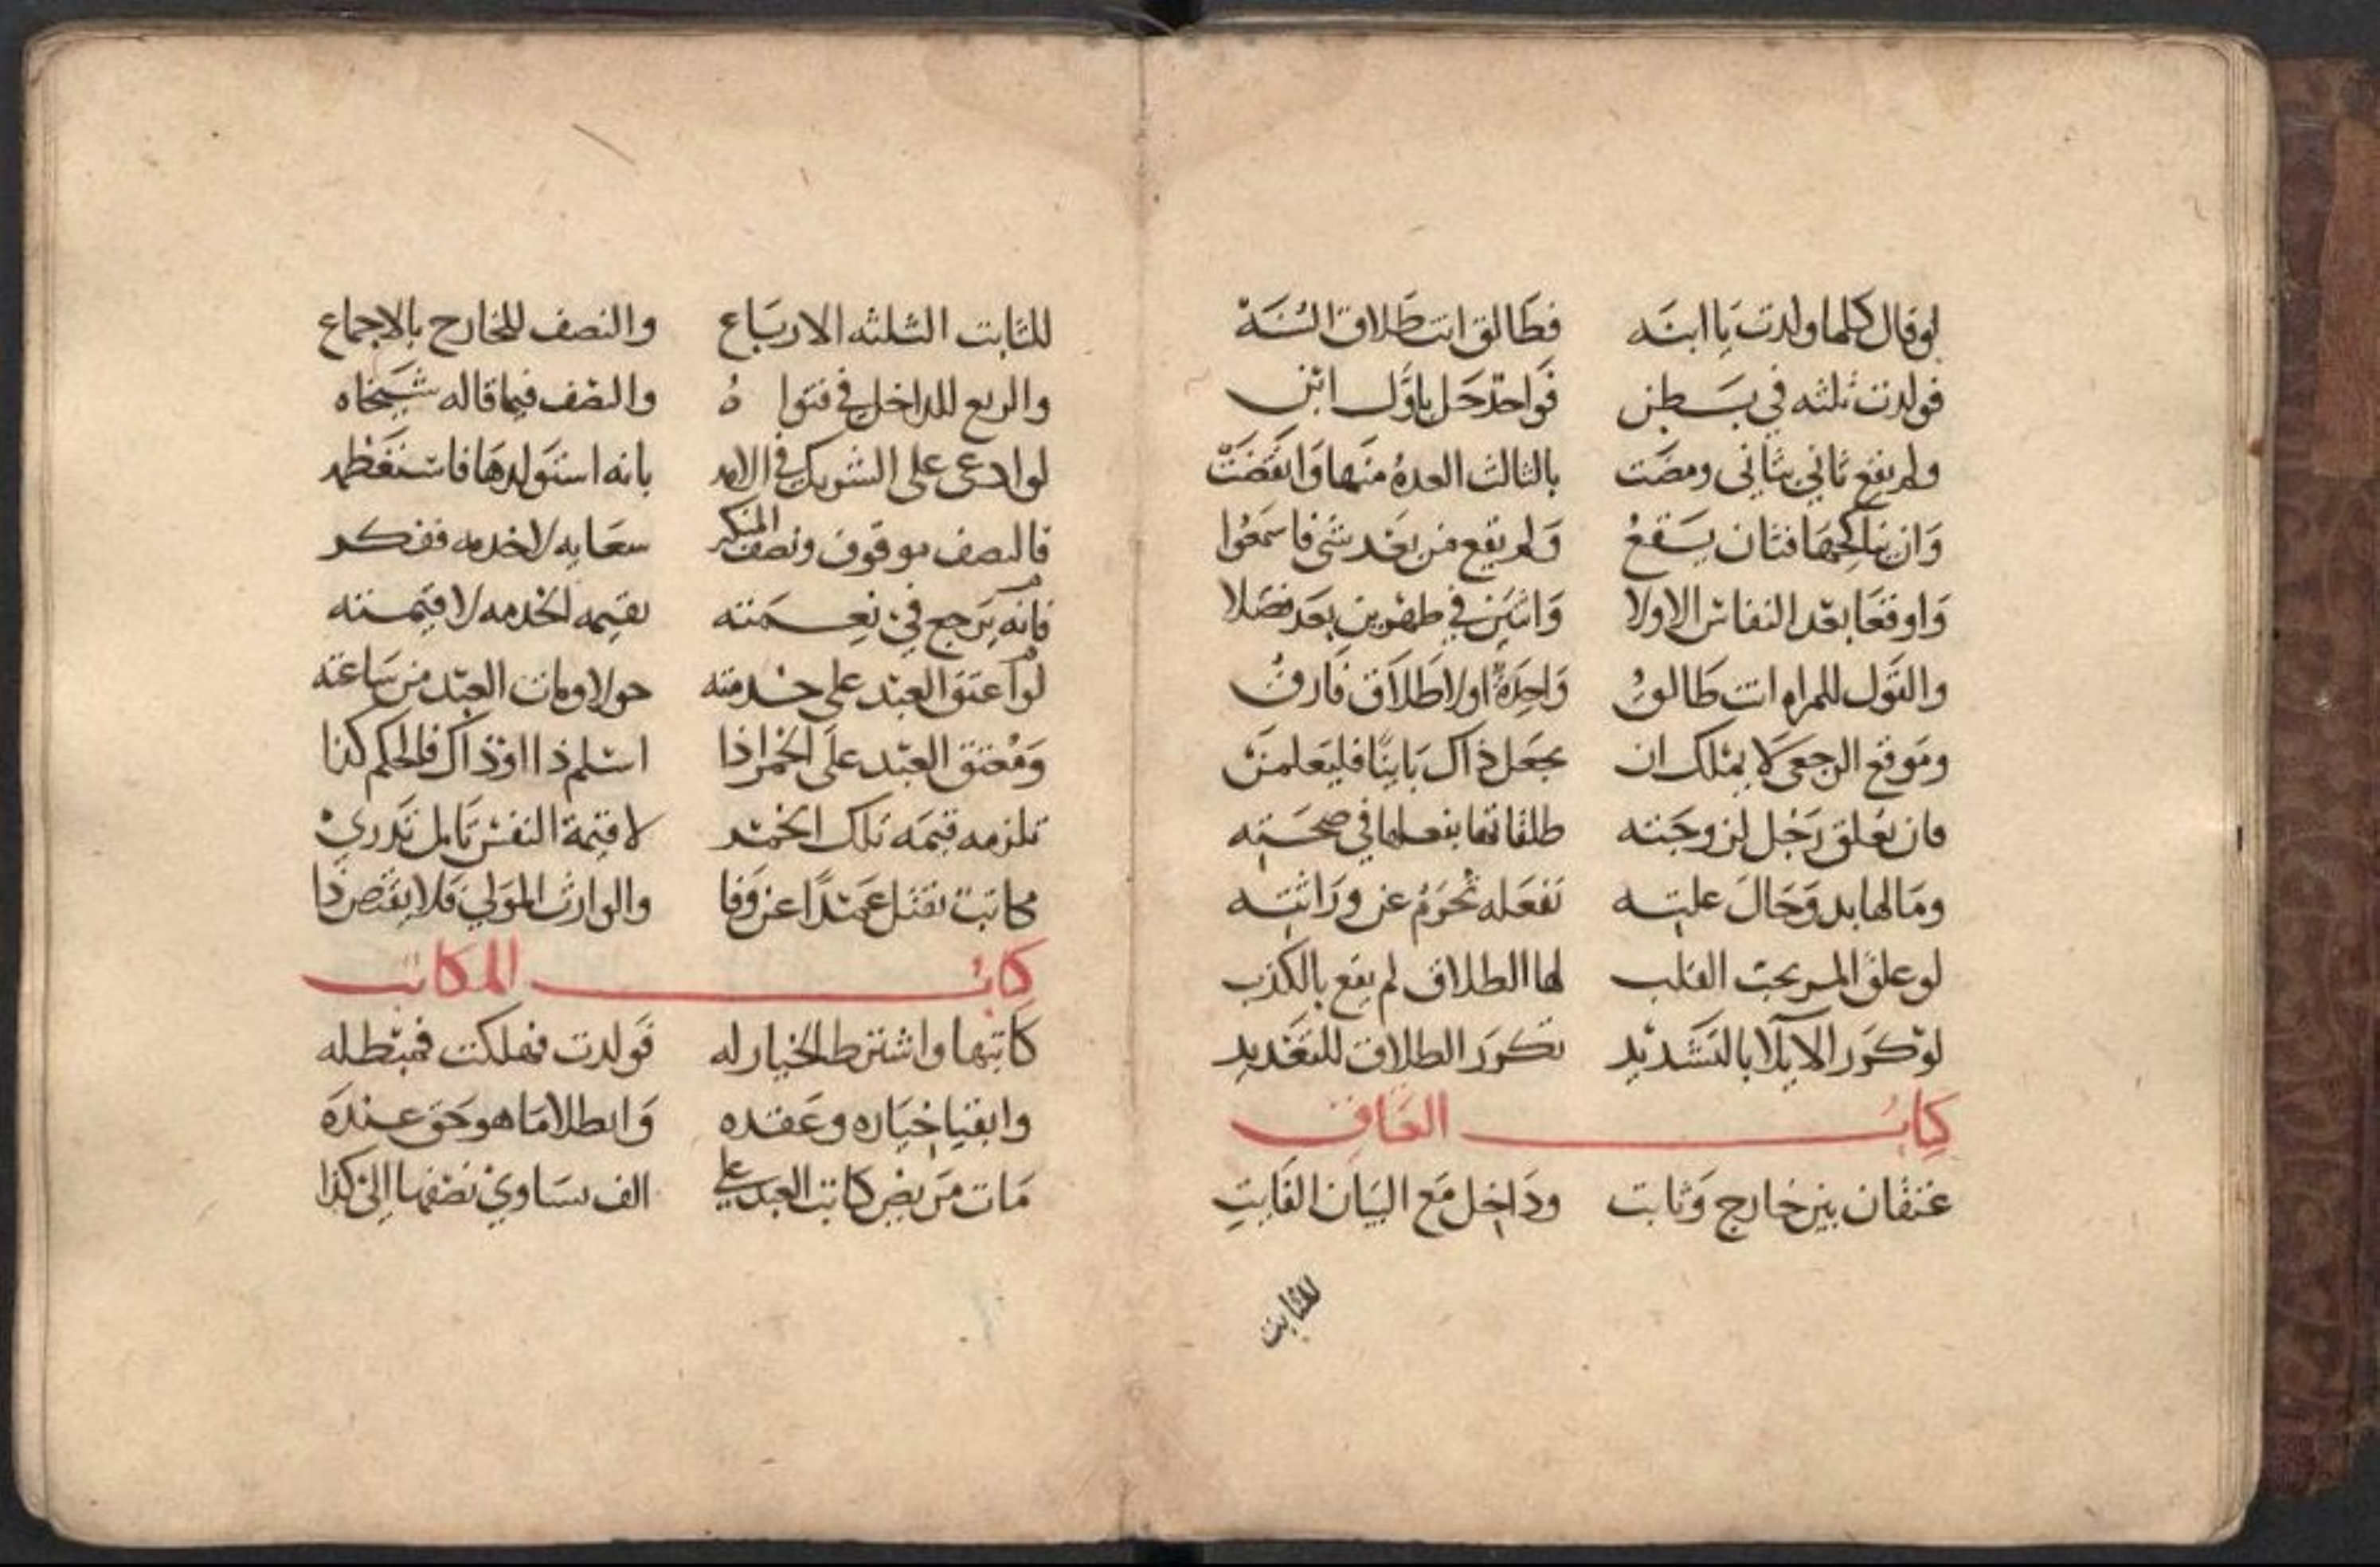 لو قال كلما ولدت يا ابنه فطالق انت طلاق السنة
فولدت ثلثه في بطن فواحد حل باول ابن
ولم يقع ثاني بثاني ومضت بالثالث العدة منها وانقضت
وان يناكحها فثان يقع ولم يقع من بعد شي فاسمعوا
واوقعا بعد النفاس الاولا واثنين في طهرين بعد فصلا
والقول للمراه انت طالق واحدة اولا طلاق فارق
وموقع الرجعي لا يملك ان يجعل ذاك باينا فليعلمن
فان يعلق رجل لزوجته طلقاتها بفعلها في صحته
وما لها بد وحال عليته تفعله تحرم عن وراثته
لو علق المر بحب القلب لها الطلاق لم يقع بالكذب
لو كرر الايلا بالتشديد تكرر الطلاق للتعديد
كتاب العتاق
عتقان بين خارج وثابت وداخل مع البيان الفايت
للثابت
للثابت الثلثه الارباع والنصف للخارج بالاجماع
والربع للداخل في فتواه والنصف فيما قاله شيخاه
لو ادعى على الشريك في الامه بانه استولدها
فالنصف موقوف ونصف المنكر سعايه لاخدمه ففكر
فانه يرجع في بقيمه لخدمه لا قيمته
لو اعتق العبد على خدمته حولا ومات العبد من ساعته
ومعتق العبد على الخمر اذا اسلم ذا او ذاك فالحكم كذا
تلزمه قيمه تلك الخمر لا قيمة النفس تامل تدري
مكاتب يقتل عمدا عن وفا والوارث المولي فلا يقتص ذا
كتاب المكاتب
كاتبها واشترط الخيار له فولدت فهلكت فمبطله
وابقيا خياره وعقده وابطلا ما هو حق عنده
مات مريض كاتب العبد على الف يساوي نصفها الى كذا